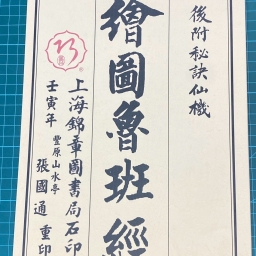 後附秘訣仙機
繪圖魯班經
上海錦章圖書局石印
壬寅年
豐原山水亭
張國通 重印